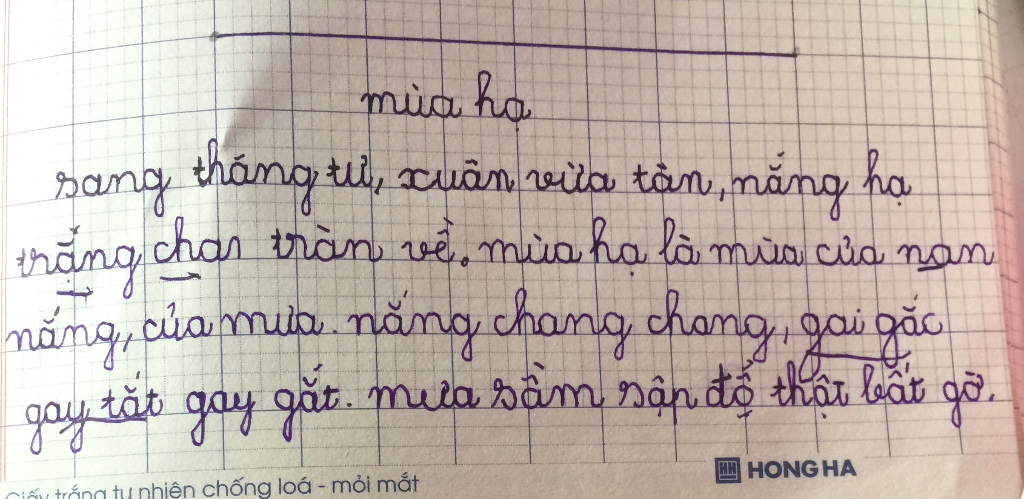 mùa hạ
sang tháng tư, xuân vừa tàn, nắng hạ
trắng chan tràn về. mùa hạ là mùa của nan
nắng, của mưa. nắng chang chang, gai gắc
gay tắt gay gắt. mưa sầm sập đổ thật bất gờ.
HONG HA
Giấy trắng tự nhiên chống loá - mỏi mắt